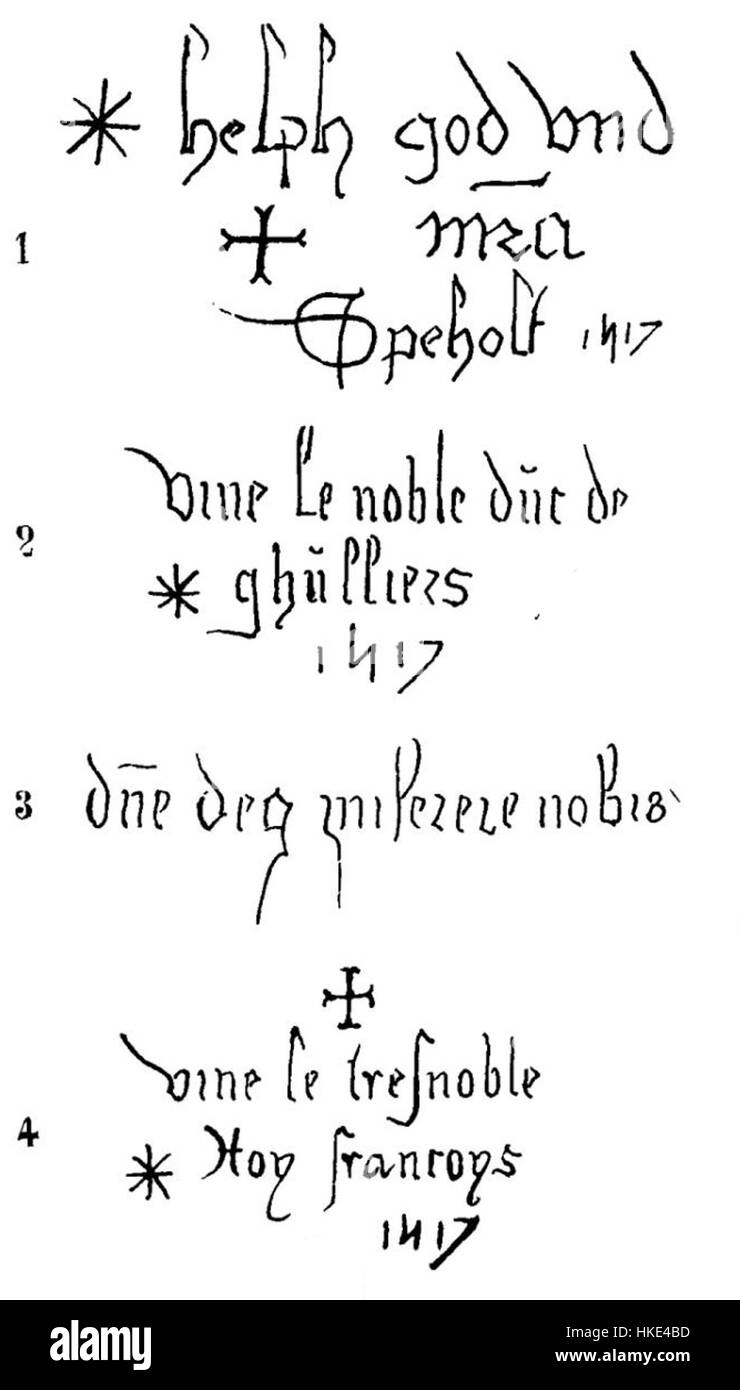 helph god vnd
1
mza
Speholt 1517
vive le noble dŭc de
2
ghŭlliers
1517
3
dn̄e deq miserere nobis
vive le tresnoble
4
Roy francoys
1517
alamy
Image ID: HKE4BD
www.alamy.com